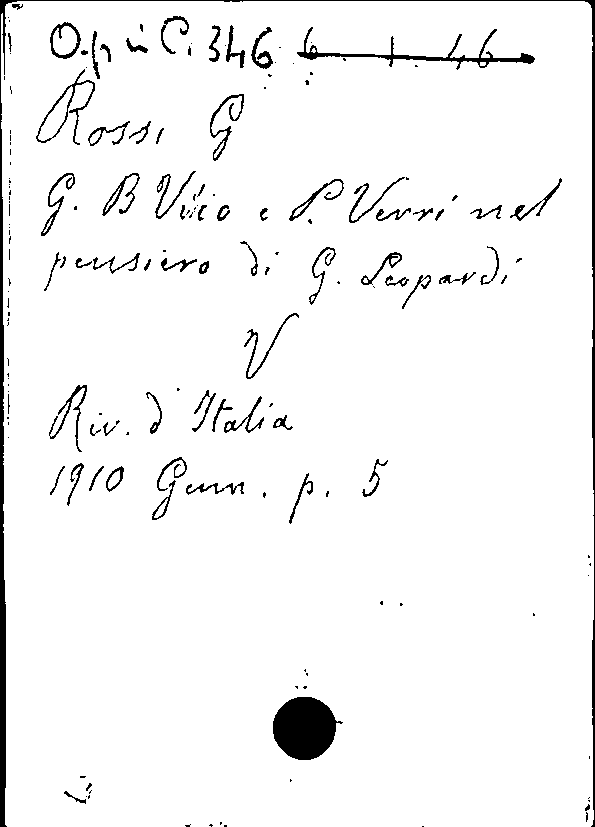 Op in C. 346 6. 1. 46
Rossi G
G. B Vico e P. Verri nel
pensiero di G. Leopardi
V
Riv. d'Italia
1910 Genn. p. 5